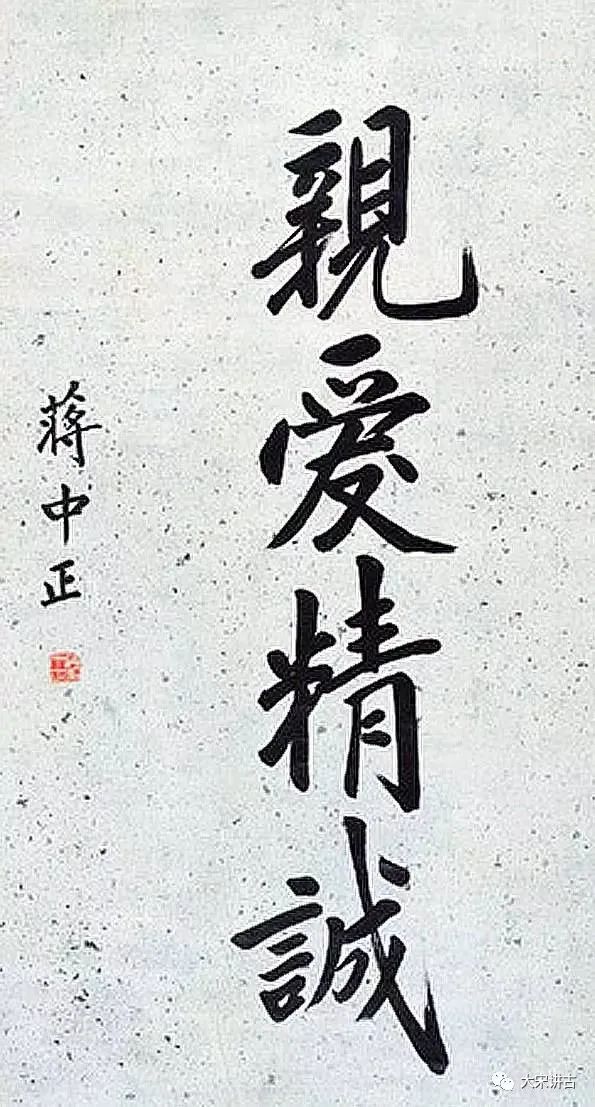 親爱精誠
蔣中正
大宋讲古